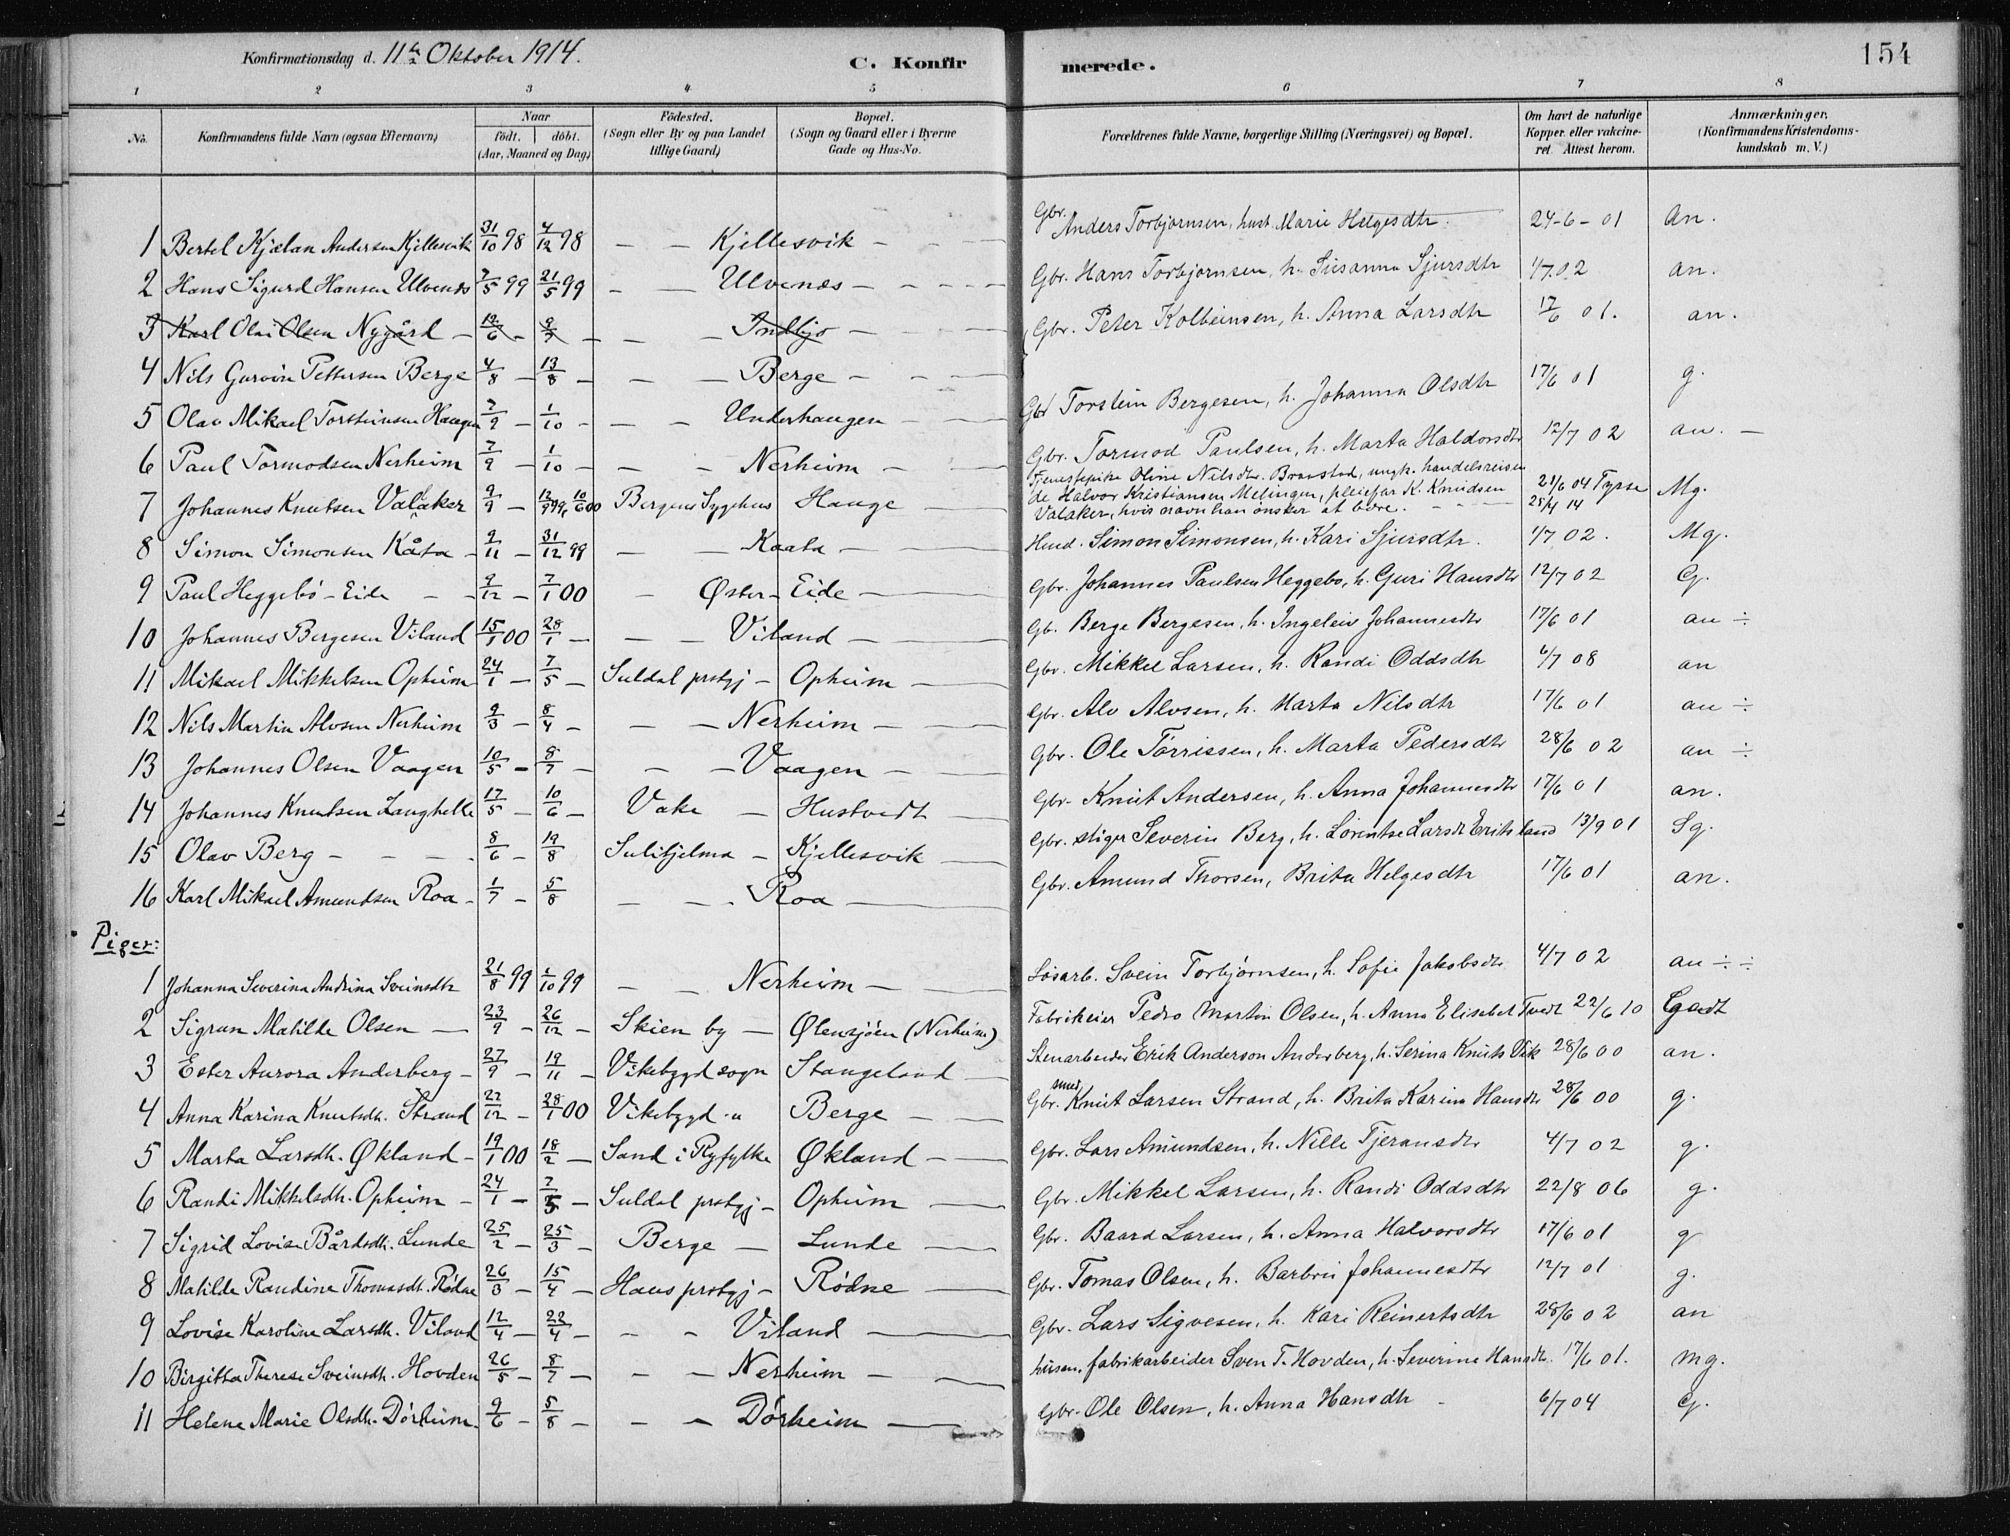 Konfirmationsdag d. 11te Oktober 1914.
C. Konfirmerede.
154
1 2 3 4 5 6 7 8
No. Konfirmandens fulde Navn (ogsaa Efternavn) Naar født. døbt. (Aar, Maaned og Dag) Födested. (Sogn eller By og paa Landet tillige Gaard) Bopæl. (Sogn og Gaard eller i Byerne Gade og Hus-No. Forældrenes fulde Navne, borgerlige Stilling (Næringsvei) og Bopæl. Om havt de naturlige Kopper eller vakcineret. Attest herom. Anmærkninger. (Konfirmandens Kristendomskundskab m. V.)
1 Bertel Kjælan Andersen Kjellesvik 31/10 98 4/12 98 — — Kjellesvik — Gbr. Anders Torbjørnsen, hust. Marie Helgesdtr. 24-6-01 an.
2 Hans Sigurd Hansen Ulvenæs 7/5 99 21/5 99 — — Ulvenæs — Gbr. Hans Torbjørnsen, h. Susanna Sjursdtr 1/7.02 an.
3 Karl Olai Olsen Nygård — 12/6 — 9/7 — — — Indbjo —
4 Nils Gurvin Pettersen Berge 4/8 — 13/8 — — — Berge — Gbr. Peter Kolbeinsen, h. Anna Larsdtr 17/6 01. an.
5 Olav Mikael Torsteinsen Haugen 7/9 — 1/10 — — — Underhaugen — Gbr Torstein Bergesen, h. Johanna Olsdtr 17/6 01 g.
6 Paul Tormodsen Nerheim 7/9 — 1/10 — — — Nerheim — Gbr. Tormod Paulsen, h. Marta Haldorsdtr 12/7 02 an. —
7 Johannes Knutsen Valaker 9/9 — 12/9 99, 10/6 00 Bergens Sygehus Hauge — Tjenestepike Oline Nilsdtr. Bravstad, ungk. handelsreisen
de Halvor Kristiansen Mehingen, pleiefar K. Knudsen 21/6 04 Tysse Mg.
Valaker, hvis navn han ønsker at bære. 25/4 14
8 Simon Simonsen Kåta — 9/11 — 31/12 99 — — Kaata — Husd. Simon Simonsen, h. Kari Sjursdtr. 1/7 02. Mg.
9 Paul Heggebø - Eide — 9/12 — 7/1 00 — Øster-Eide — Gbr. Johannes Paulsen Heggebø, h. Guri Hansdtr 12/7 02 G.
10 Johannes Bergesen Viland 15/1 00 28/1 — — — Viland — Gb. Berge Bergesen, h. Ingeleiv Johannesdtr 17/6 01 an ÷
11 Mikael Mikkelsen Opheim 24/1 — 7/5 — Suldal prstgj — Opheim — Gbr. Mikkel Larsen, h. Randi Oddsdtr 4/7 08 an
12 Nils Martin Alvsen Nerheim 9/3 — 8/4 — — — Nerheim — Gbr. Alv Alvsen, h. Marta Nilsdtr 17/6 01 an ÷
13 Johannes Olsen Vaagen 10/5 — 8/7 — — — Vaagen — Gbr. Ole Tørrissen, h. Marta Pedersdtr 28/6 02 an ÷
14 Johannes Knutsen Langhelle 17/5 — 10/6 — Vake — Hustvedt — Gbr. Knut Andersen, h. Anna Johannesdtr 17/6 01 an.
15 Olav Berg — 8/6 — 19/8 Sulitjelma — Kjellesvik — Gbr. stiger Severin Berg, h. Lorentse Larsdt Eriksland 13/9 01 Sg.
16 Karl Mikael Amundsen Roa — 1/7 — 5/8 — — Roa — Gbr. Amund Thorsen, Brita Helgesdtr 17/6 01 an.
Piger:
1 Johanna Severina Andrina Sveinsdtr 21/8 99 1/10 99 — — Nerheim — Løsarb. Svein Torbjørnsen, h. Sofie Jakobsdtr 4/7 02 an ÷ ÷
2 Sigrun Matilde Olsen — 23/9 — 26/12 — Skien by — Ølensjøen (Nerheim) Fabrikeier Pedro Martin Olsen, h. Anna Elisabet Tvedt 22/6 10 Godt
3 Ester Aurora Anderberg — 27/9 — 19/11 — Vikebygd sogn Stangeland — Stenarbeider Erik Anderson Anderberg, h. Serina Knuts Vik 28/6 00 an.
4 Anna Karina Knutsdtr. Strand 22/12 — 28/1 00 Vikebygd " Berge — Gbr. smed Knut Larsen Strand, h. Brita Karina Hansdtr 28/6 00 g.
5 Marta Larsdtr. Økland — 19/1 00 18/2 — Sand i Ryfylke Økland — Gbr. Lars Amundsen, h. Nille Tjeransdtr 4/7 02 g.
6 Randi Mikkelsdtr. Opheim — 24/1 — 7/5 — Suldal prstgj — Opheim — Gbr. Mikkel Larsen, h. Randi Oddsdtr 22/8 06 g.
7 Sigrid Lovise Bårdsdtr. Lunde 25/2 — 25/3 — Berge — Lunde — Gbr. Baard Larsen, h. Anna Halvorsdtr 17/6 01 g
8 Matilde Randine Thomasdtr. Rødne 26/3 — 15/4 — Haus prstgj — Rødne — Gbr. Tomas Olsen, h. Barbro Johannesdtr 12/7 01 g.
9 Lovise Karoline Larsdtr. Viland 12/4 — 22/4 — — — Viland — Gbr. Lars Sigvesen, h. Kari Reinertsdtr 28/6 02 an
10 Birgitta Therese Sveinsdtr. Hovden 26/5 — 8/7 — — — Nerheim — husm. fabrikarbeider Sven T. Hovden, h. Severine Hansdtr. 17/6 01. mg.
11 Helene Marie Olsdtr. Dørheim. 9/6 — 5/8 — — — Dørheim — Gbr. Ole Olsen, h. Anna Hansdtr 6/7 04 G.